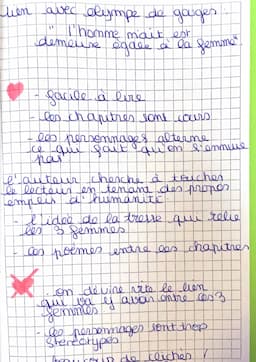 lien avec olympe de gouges :
"l'homme mait est
demeure égale à la femme"
- facile à lire
- les chapitres sont cours
- les personnages alterne
ce qui fait qu'on s'ennuie
pas
l'auteur cherche à toucher
le lecteur en tenant des propos
empli d'humanité
- l'idée de la tresse qui relie
les 3 femmes
- les poèmes entre les chapitres
- on devine vite le lien
qui va y avoir entre les 3
femmes
- les personnages sont trop
stéréotypés
beaucoup de clichés !